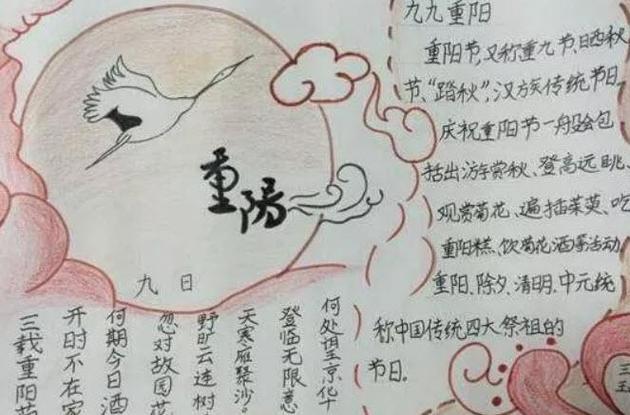 九九重阳
重阳节,又称重九节、晒秋
节、“踏秋”,汉族传统节日。
庆祝重阳节一般会包
括出游赏秋、登高远眺、
观赏菊花、遍插茱萸、吃
重阳糕、饮菊花酒等活动
重阳、除夕、清明、中元统
称中国传统四大祭祖的
节日.
重陽
九日
何处望京华
登临无限意
天寒雁聚沙。
野旷云连树
忽对故园花
何期今日酒
开时不在家
三载重阳菊
三